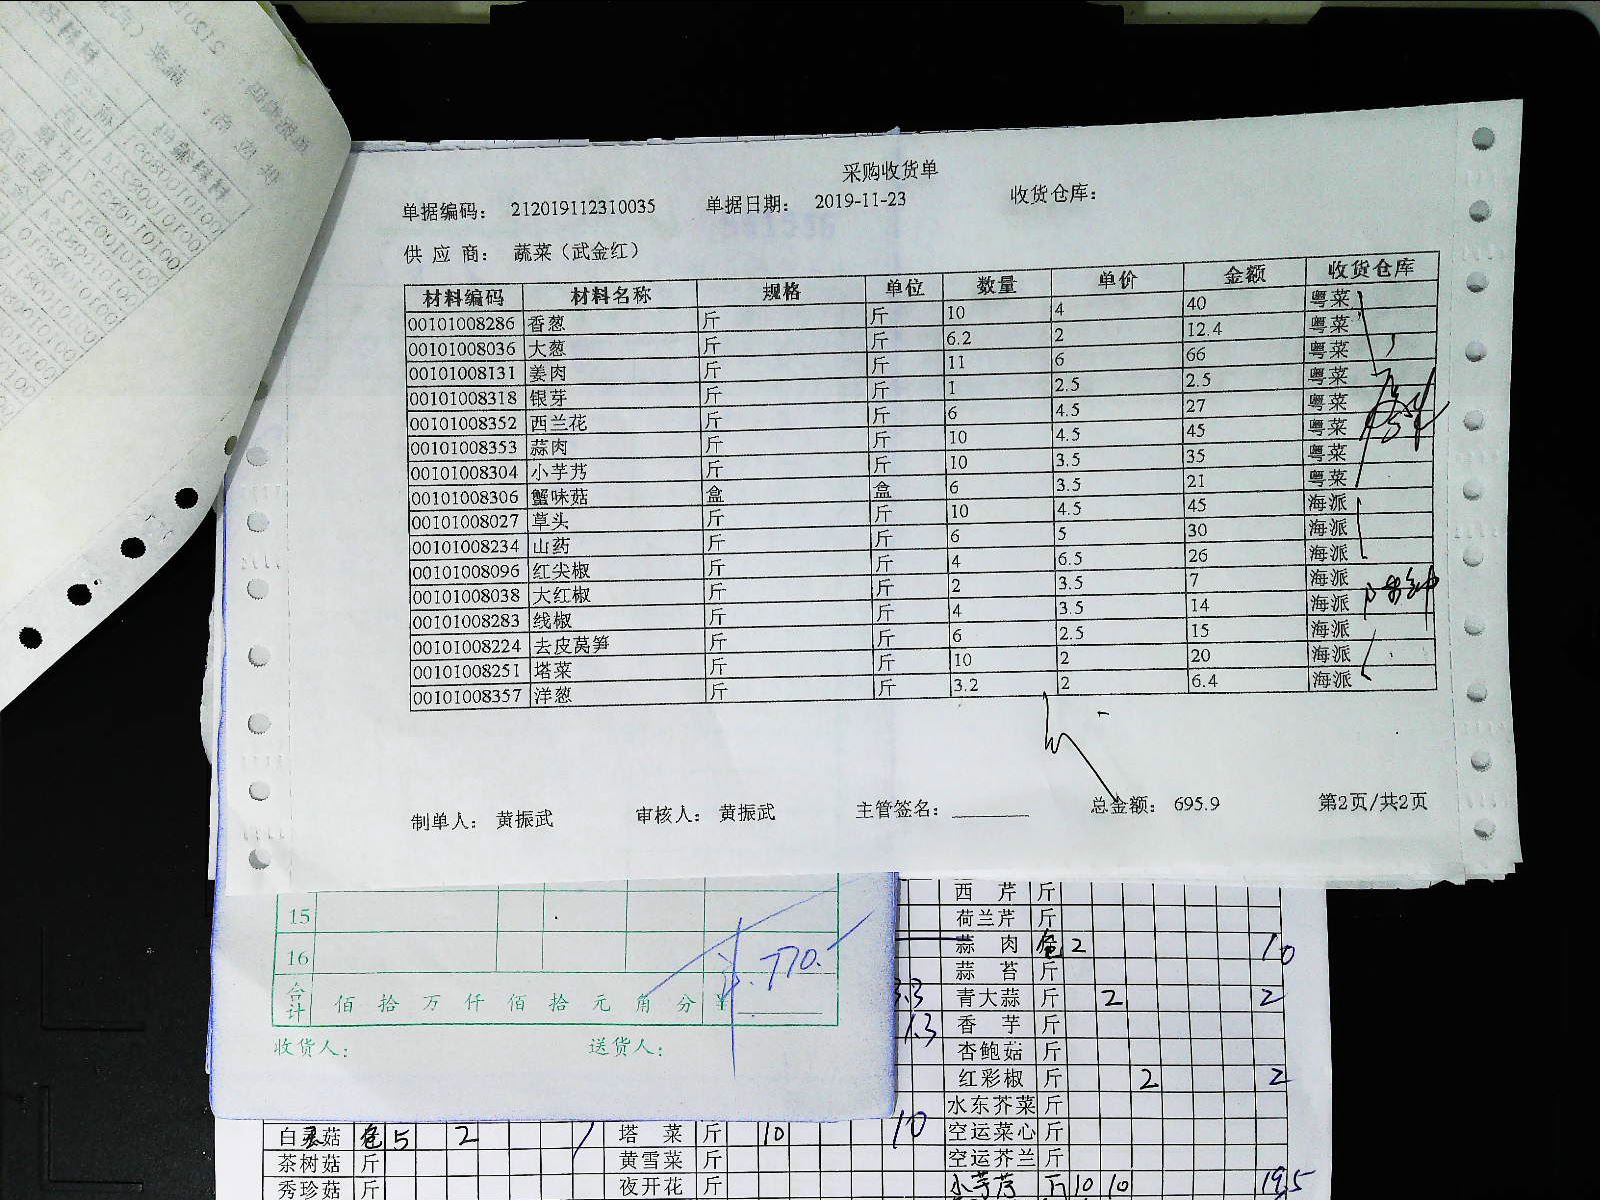 采购收货单
单据编码： 212019112310035 单据日期： 2019-11-23 收货仓库：
供 应 商： 蔬菜（武金红）
材料编码 材料名称 规格 单位 数量 单价 金额 收货仓库
00101008286 香葱 斤 斤 10 4 40 粤菜
00101008036 大葱 斤 斤 6.2 2 12.4 粤菜
00101008131 姜肉 斤 斤 11 6 66 粤菜
00101008318 银芽 斤 斤 1 2.5 2.5 粤菜
00101008352 西兰花 斤 斤 6 4.5 27 粤菜
00101008353 蒜肉 斤 斤 10 4.5 45 粤菜
00101008304 小芋艿 斤 斤 10 3.5 35 粤菜
00101008306 蟹味菇 盒 盒 6 3.5 21 粤菜
00101008027 草头 斤 斤 10 4.5 45 海派
00101008234 山药 斤 斤 6 5 30 海派
00101008096 红尖椒 斤 斤 4 6.5 26 海派
00101008038 大红椒 斤 斤 2 3.5 7 海派
00101008283 线椒 斤 斤 4 3.5 14 海派
00101008224 去皮莴笋 斤 斤 6 2.5 15 海派
00101008251 塔菜 斤 斤 10 2 20 海派
00101008357 洋葱 斤 斤 3.2 2 6.4 海派
制单人： 黄振武 审核人： 黄振武 主管签名： 总金额： 695.9 第2页/共2页
15
16
合计 佰 拾 万 仟 佰 拾 元 角 分 ¥ 770.
收货人： 送货人：
西 芹 斤
荷兰芹 斤
蒜 肉 2 10
蒜 苔 斤
3.3 青大蒜 斤 2 2
1.3 香 芋 斤
杏鲍菇 斤
红彩椒 斤 2 2
水东芥菜 斤
白灵菇 5 2 7 塔 菜 斤 10 10 空运菜心 斤
茶树菇 斤 黄雪菜 斤 空运芥兰 斤
秀珍菇 斤 夜开花 斤 小芋艿 斤 10 10 19.5